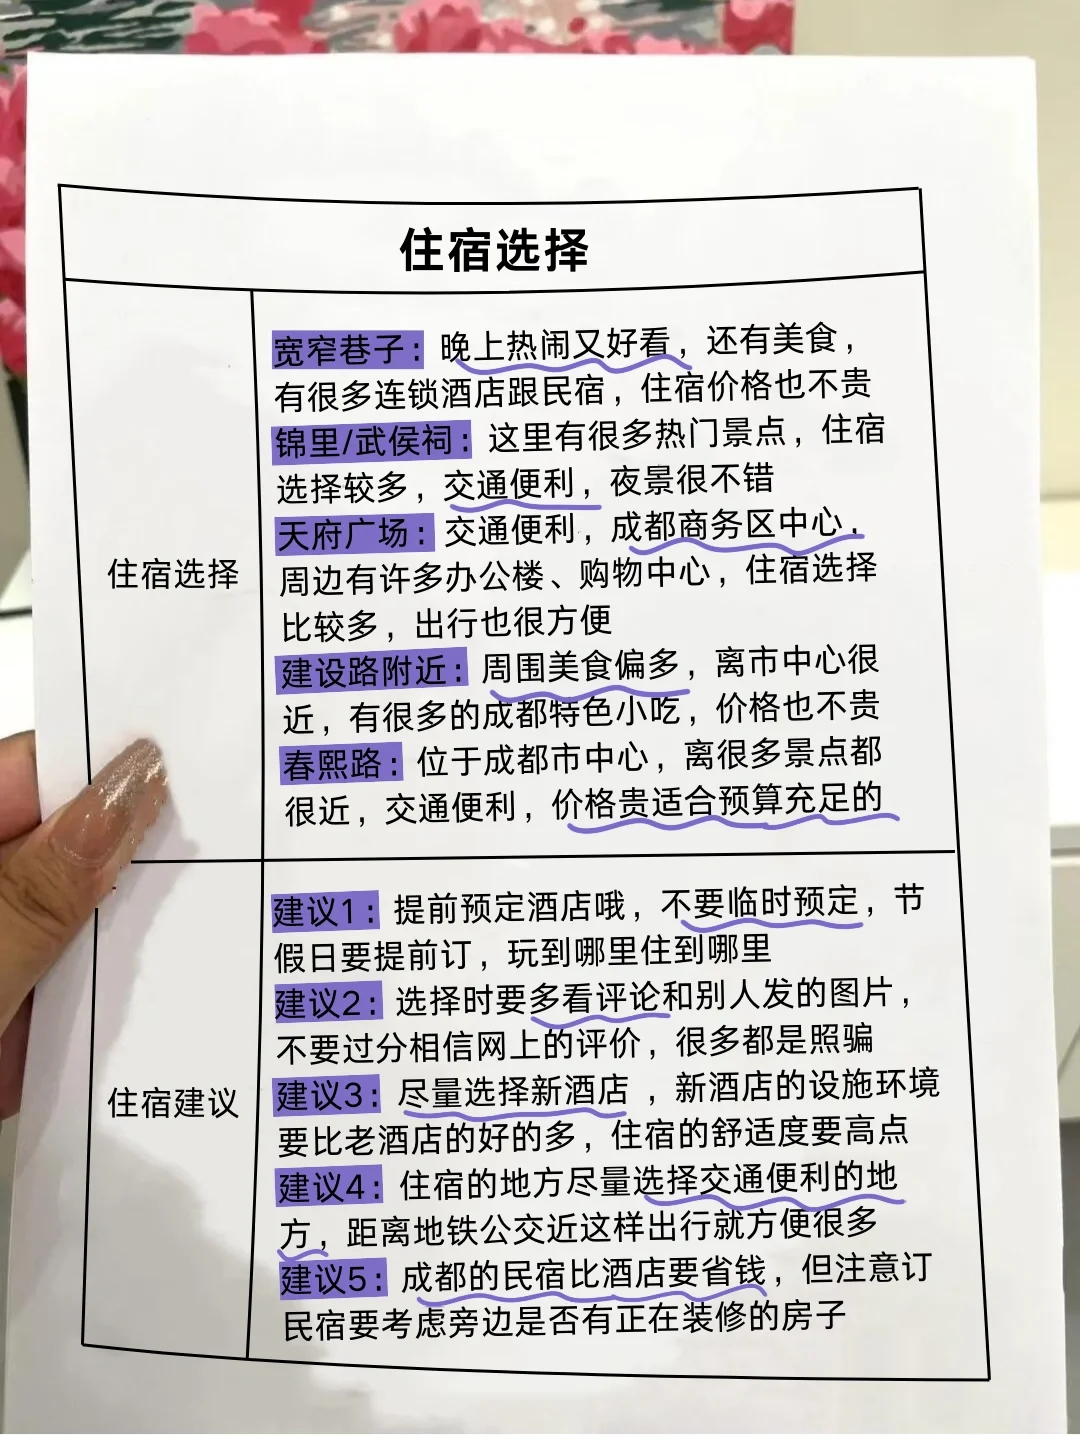 住宿选择
住宿选择
宽窄巷子：晚上热闹又好看，还有美食，
有很多连锁酒店跟民宿，住宿价格也不贵
锦里/武侯祠：这里有很多热门景点，住宿
选择较多，交通便利，夜景很不错
天府广场：交通便利，成都商务区中心，
周边有许多办公楼、购物中心，住宿选择
比较多，出行也很方便
建设路附近：周围美食偏多，离市中心很
近，有很多的成都特色小吃，价格也不贵
春熙路：位于成都市中心，离很多景点都
很近，交通便利，价格贵适合预算充足的
住宿建议
建议1：提前预定酒店哦，不要临时预定，节
假日要提前订，玩到哪里住到哪里
建议2：选择时要多看评论和别人发的图片，
不要过分相信网上的评价，很多都是照骗
建议3：尽量选择新酒店，新酒店的设施环境
要比老酒店的好的多，住宿的舒适度要高点
建议4：住宿的地方尽量选择交通便利的地
方，距离地铁公交近这样出行就方便很多
建议5：成都的民宿比酒店要省钱，但注意订
民宿要考虑旁边是否有正在装修的房子